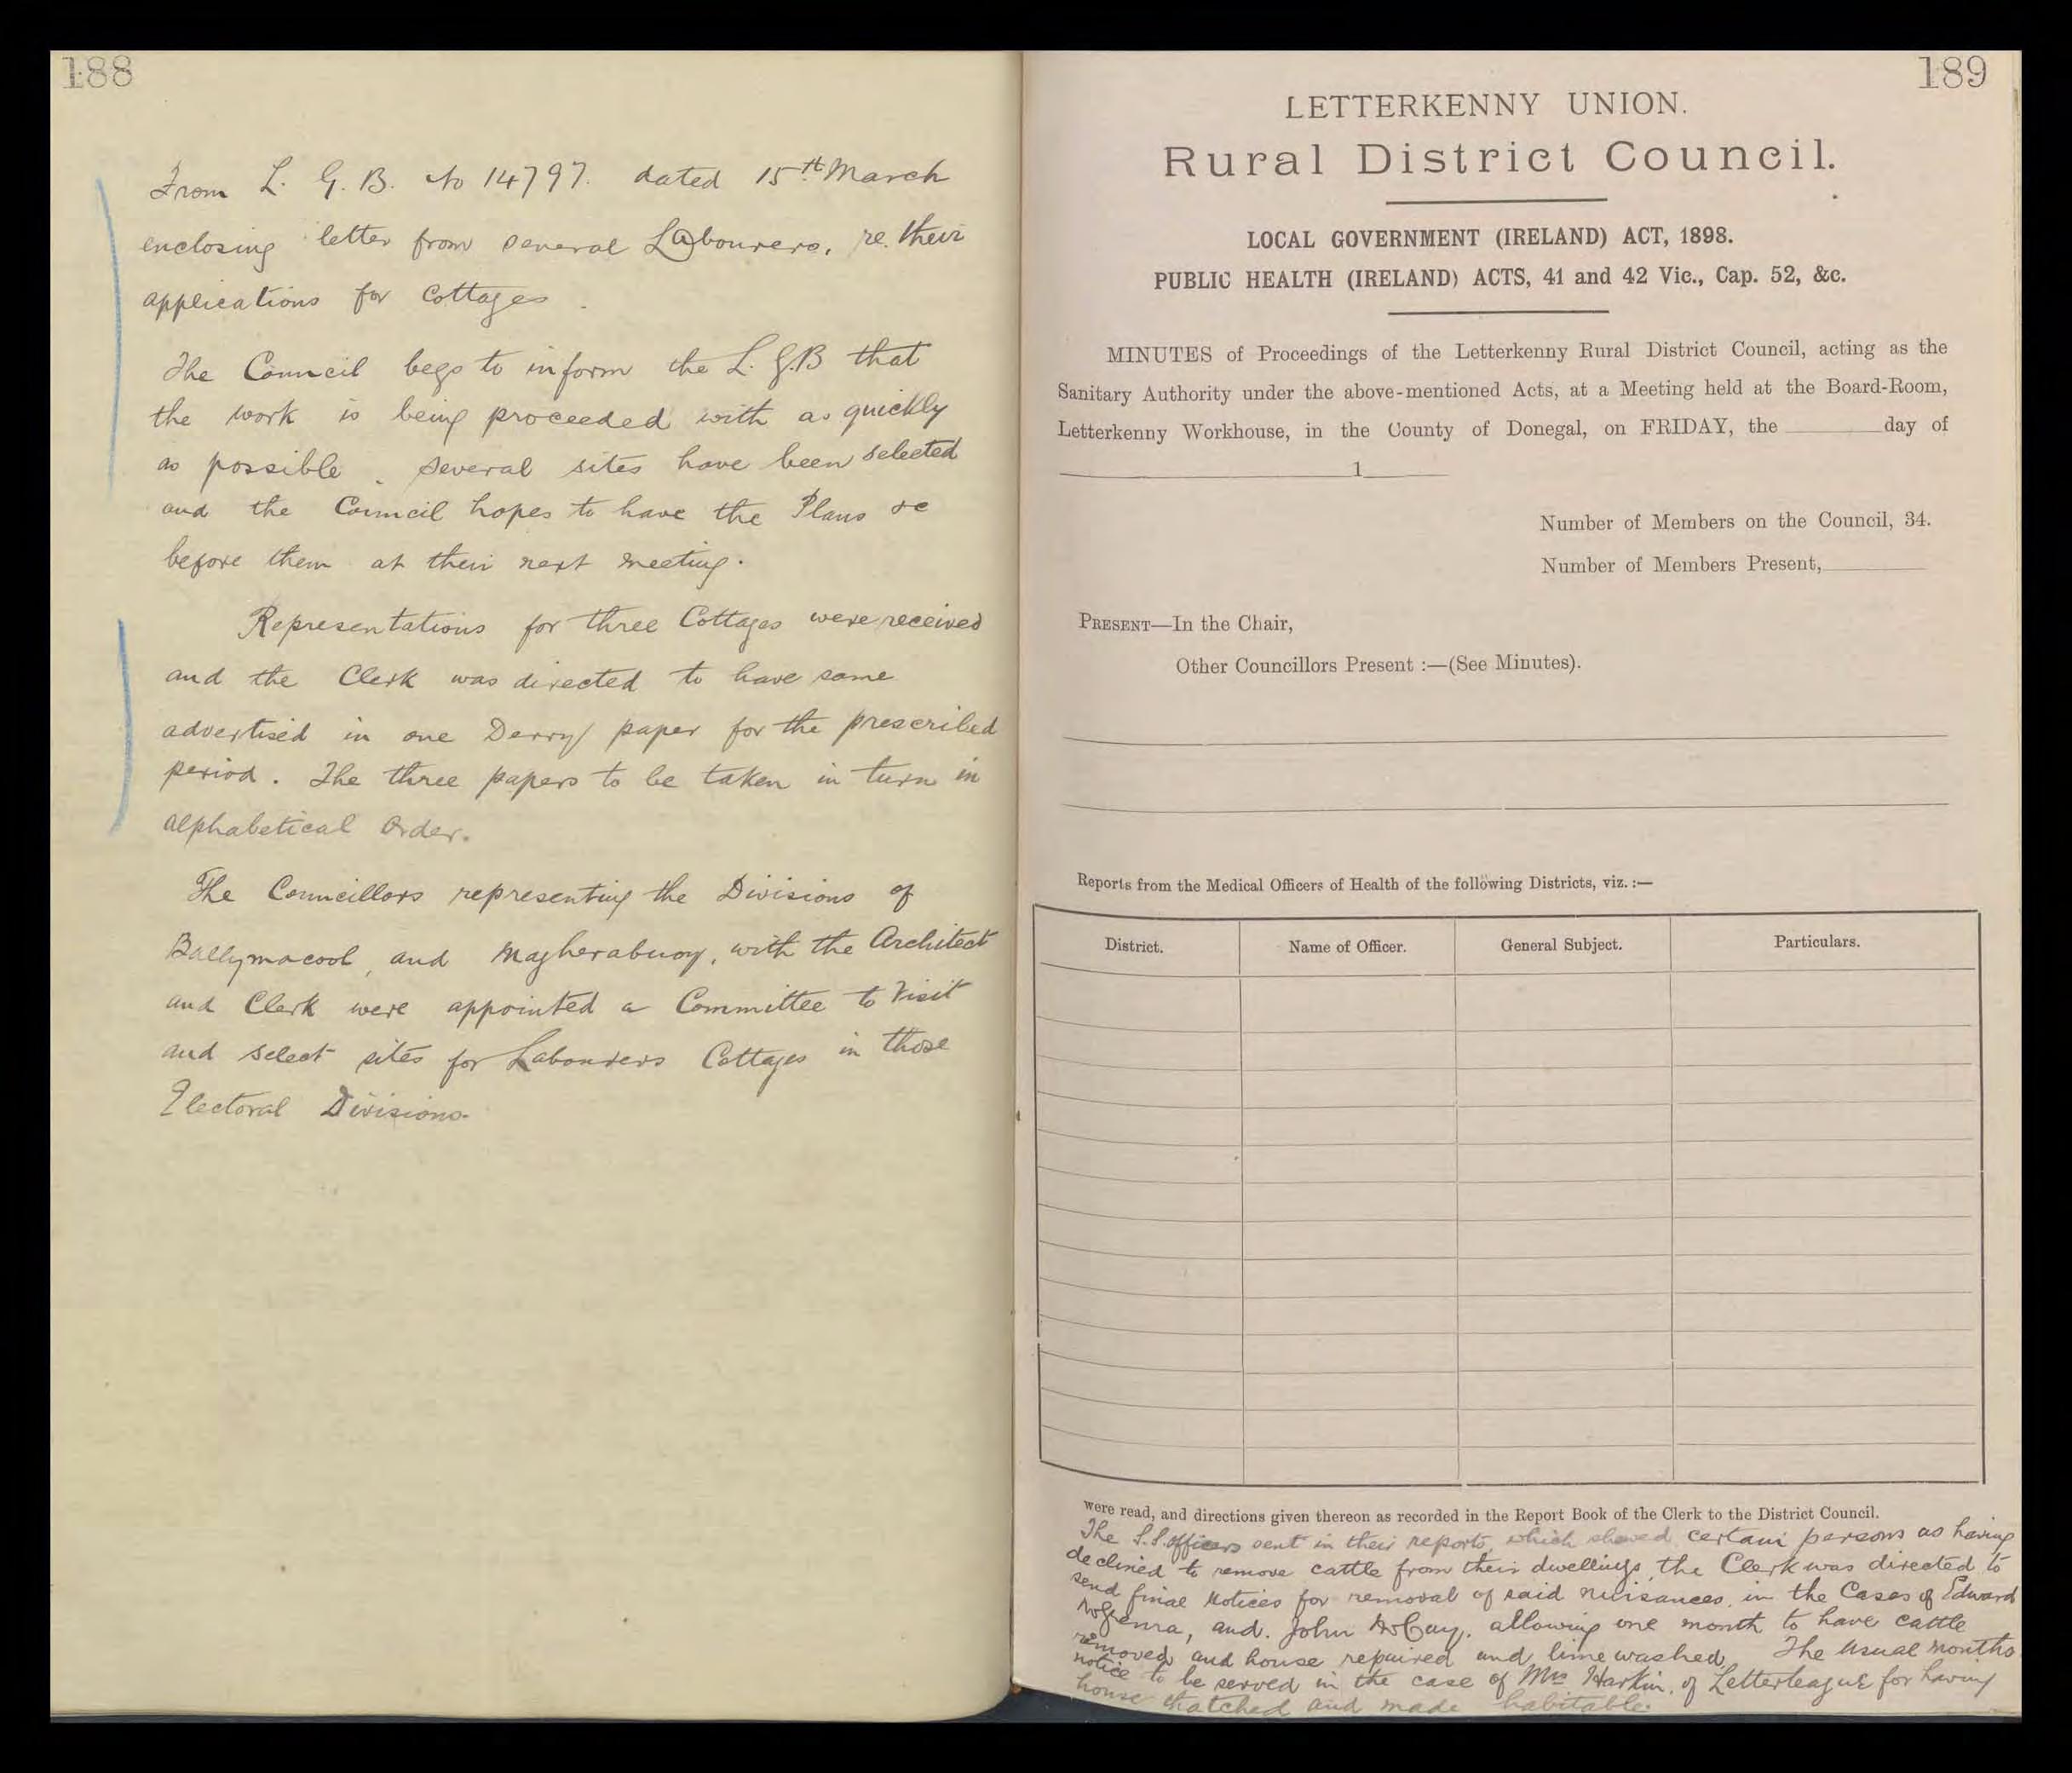 188
From L. G. B. No 14797. dated 15th March
enclosing letter from several Labourers, re. their
applications for Cottages.
The Council begs to inform the L. G.B that
the work is being proceeded with as quickly
as possible. Several sites have been selected
and the Council hopes to have the Plans &c
before them at their next meeting.
Representations for three Cottages were received
and the Clerk was directed to have same
advertised in one Derry paper for the prescribed
period. The three papers to be taken in turn in
alphabetical order.
The Councillors representing the Divisions of
Ballymacool, and Magheraboy, with the Architect
and Clerk were appointed a Committee to Visit
and select sites for Labourers Cottages in those
Electoral Divisions.
189
LETTERKENNY UNION.
Rural District Council.
LOCAL GOVERNMENT (IRELAND) ACT, 1898.
PUBLIC HEALTH (IRELAND) ACTS, 41 and 42 Vic., Cap. 52, &c.
MINUTES of Proceedings of the Letterkenny Rural District Council, acting as the
Sanitary Authority under the above-mentioned Acts, at a Meeting held at the Board-Room,
Letterkenny Workhouse, in the County of Donegal, on FRIDAY, the day of
1
Number of Members on the Council, 34.
Number of Members Present,
PRESENT—In the Chair,
Other Councillors Present :—(See Minutes).
Reports from the Medical Officers of Health of the following Districts, viz. :—
District. Name of Officer. General Subject. Particulars.
were read, and directions given thereon as recorded in the Report Book of the Clerk to the District Council.
The S.S. officers sent in their reports, which showed certain persons as having
declined to remove cattle from their dwellings, the Clerk was directed to
send final Notices for removal of said nuisances, in the Cases of Edward
and. John McCay. allowing one month to have cattle
removed and house repaired and lime washed. The usual months
notice to be served in the case of Mrs Harkin, of Letterleague for having
house thatched and made habitable.